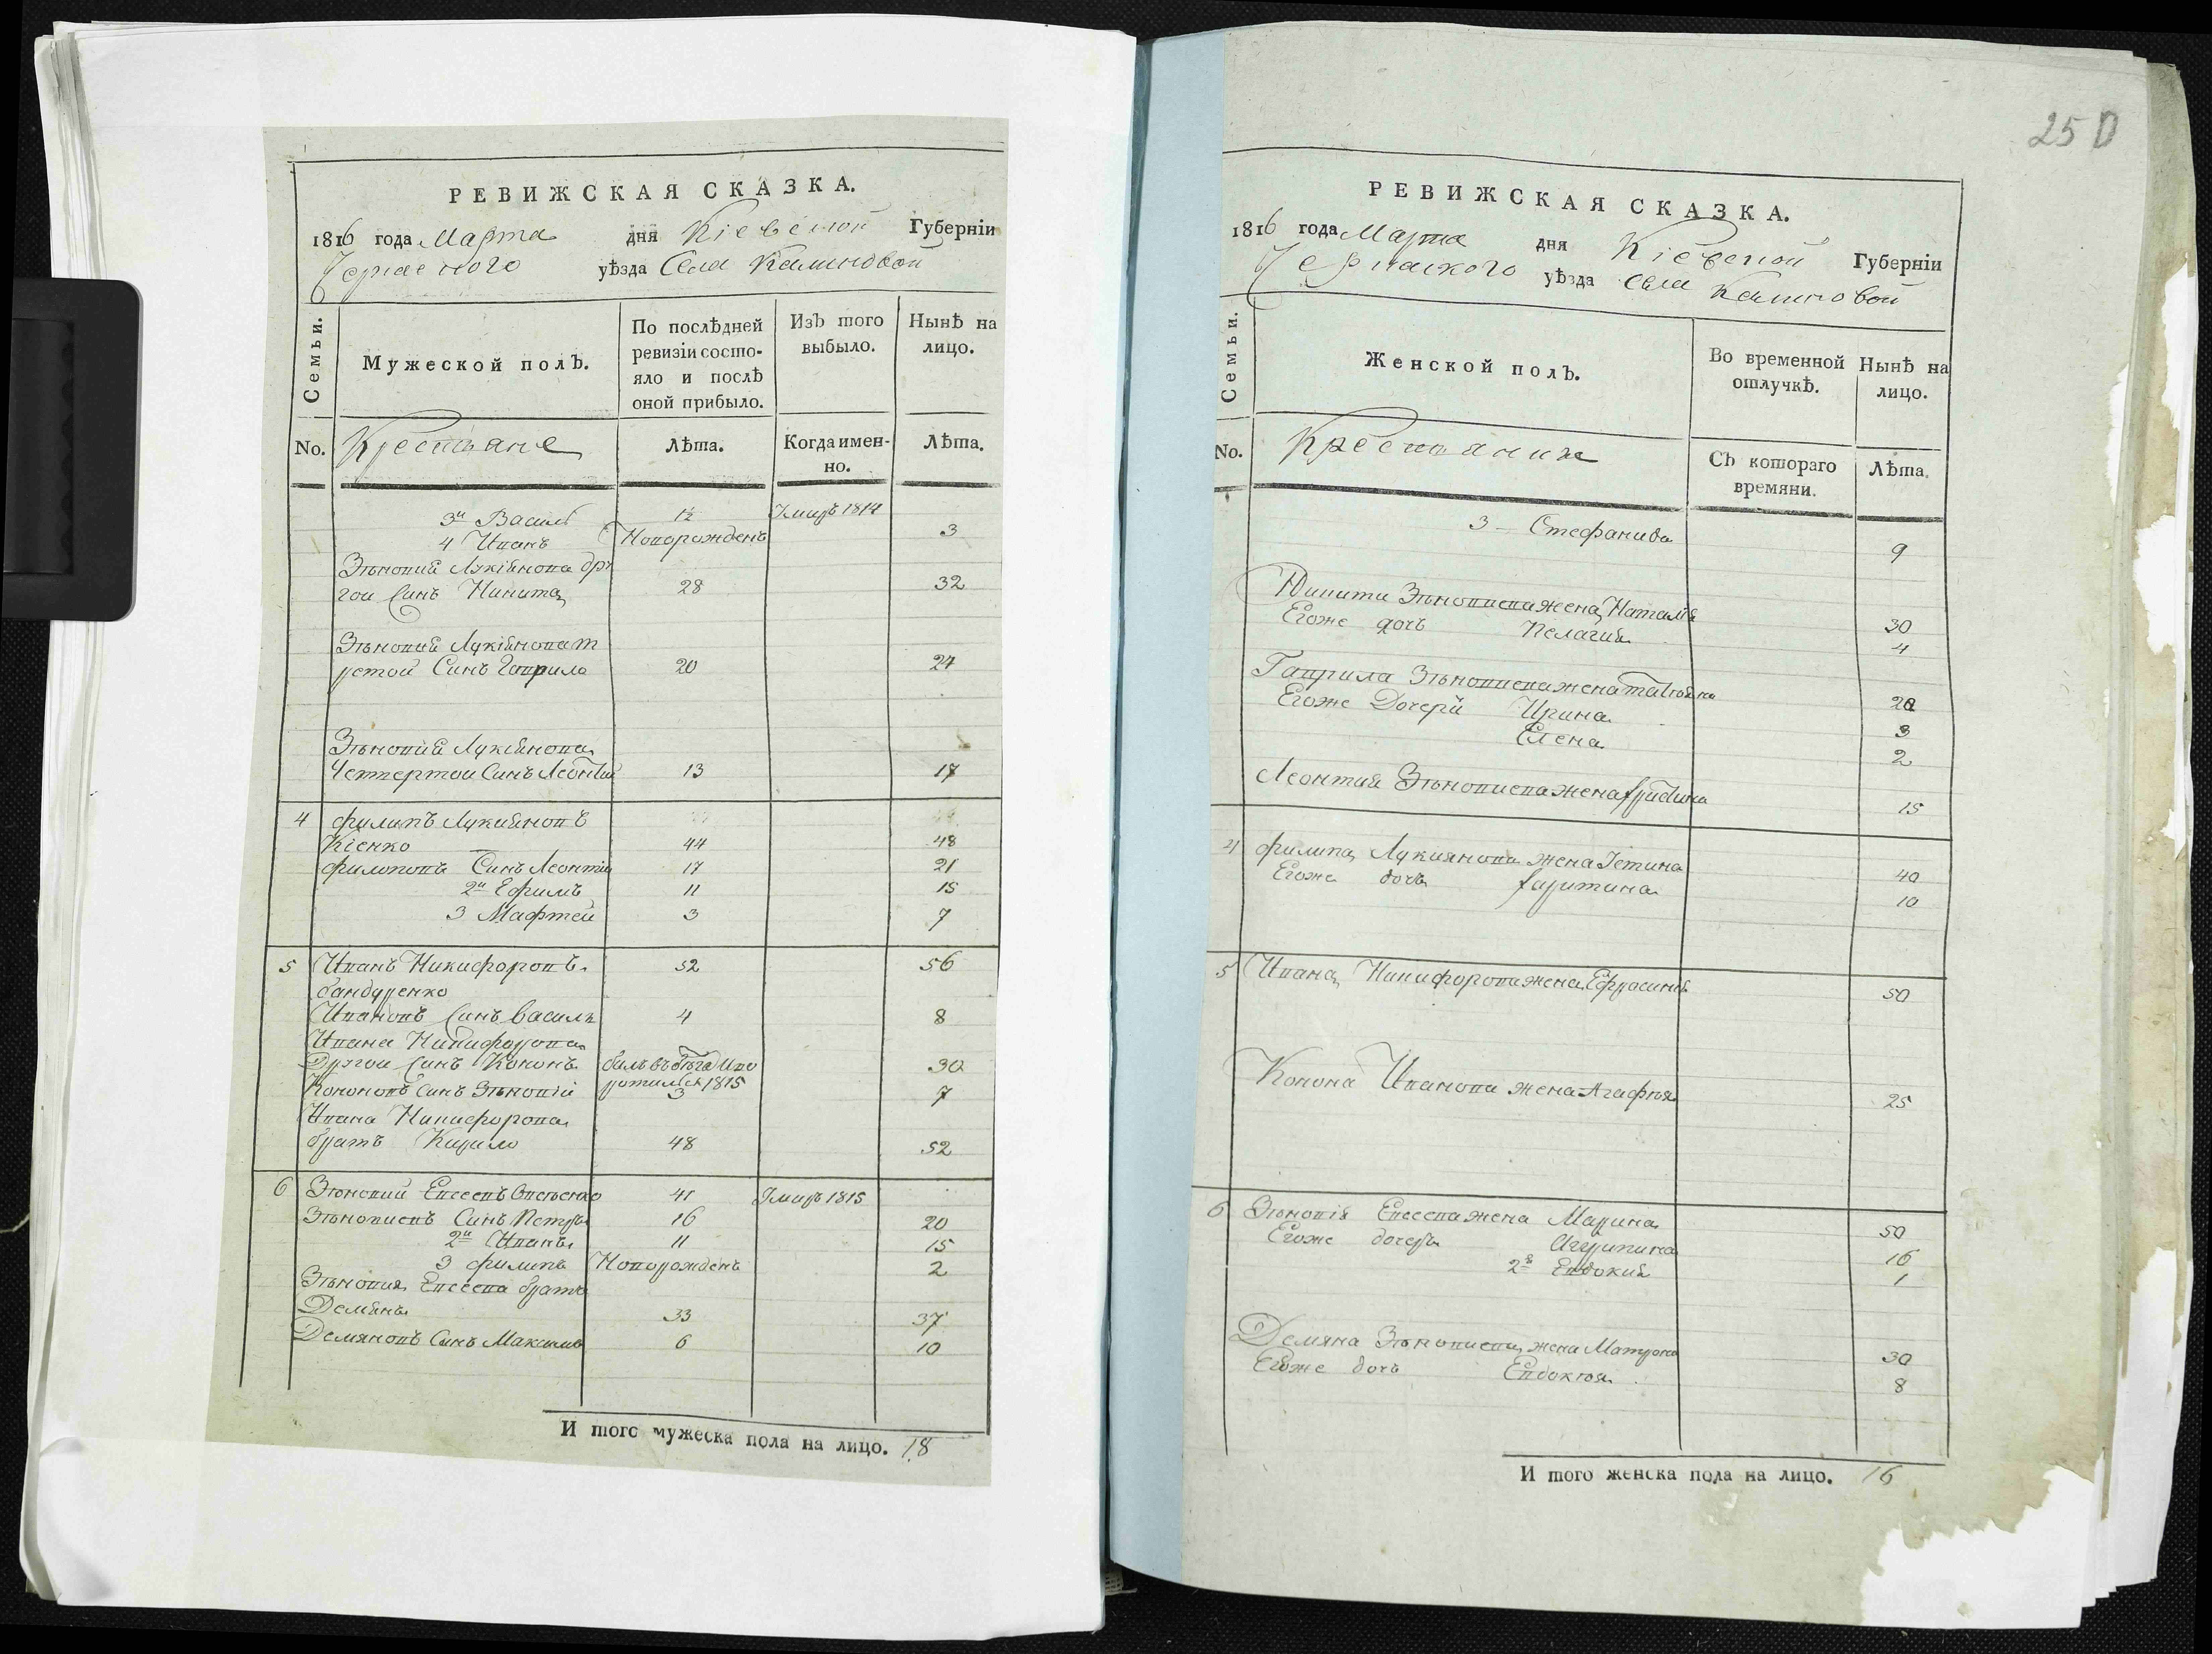 РЕВИЖСКАЯ СКАЗКА.
1816 года Марта дня Кіевской Губерніи
Черкаского уѣзда Села Калиновой
Семьи. Мужеской полъ. По послѣдней ревизіи состояло и послѣ оной прибыло. Изъ того выбыло. Нынѣ на лицо.
No. Крестяне Лѣта. Когда именно. Лѣта.
3й Василь 12 Умиръ 1814
4 Иванъ Новорожденъ 3
Зѣновия Лукіянова дру
гои Синъ Никита 28 32
Зѣновия Лукіянова т
ретой Синъ Гаврило 20 24
Зѣновия Лукіянова
Четвертои Синъ Леонтий 13 17
4 филипъ Лукияновъ
Кіенко 44 48
филиповъ Синъ Леонтій 17 21
2й Ефимъ 11 15
3 Мафтей 3 7
5 Иванъ Никифоровъ 52 56
бандуренко
Ивановъ Синъ василь 4 8
Ивана Никифорова
Другои Синъ Кононъ билъ въ бѣга и во 30
Кононовъ Синъ Зѣновій ротился 1815 3 7
Ивана Никифорова
братъ Кирило 48 52
6 Зѣновий Евсеевъ 41 Умиръ 1815
Зѣновиевъ Синъ Петръ 16 20
2й Иванъ 11 15
3 филипъ Новорожденъ 2
Зѣновия Евсеева братъ
Демянъ 33 37
Демяновъ Синъ Максимъ 6 10
И того мужеска пола на лицо. 18
25
РЕВИЖСКАЯ СКАЗКА.
1816 года Марта дня Кіевской Губерніи
Черкаского уѣзда Села Калиновой
Семьи. Женской полъ. Во временной отлучкѣ. Нынѣ на лицо.
No. Крестянки Съ котораго времяни. Лѣта.
3 Стефанида 9
Никити Зѣновиева жена Наталія 30
Егоже дочь Пелагия 4
Гаврила Зѣновиева жена татіяна 20
Егоже Дочери Ирина 3
Елена 2
Леонтия Зѣновиева жена 15
4 филипа Лукиянова жена 40
Егоже дочь 10
5 Ивана Никифорова жена Ефросиня 50
Конона Иванова жена Агафія 25
6 Зѣновія Евсеева жена Марина 50
Егоже дочеръ Агрипина 16
2я Евдокия 1
Демяна Зѣновиева жена Матрона 30
Егоже дочь Евдокія 8
И того женска пола на лицо. 16